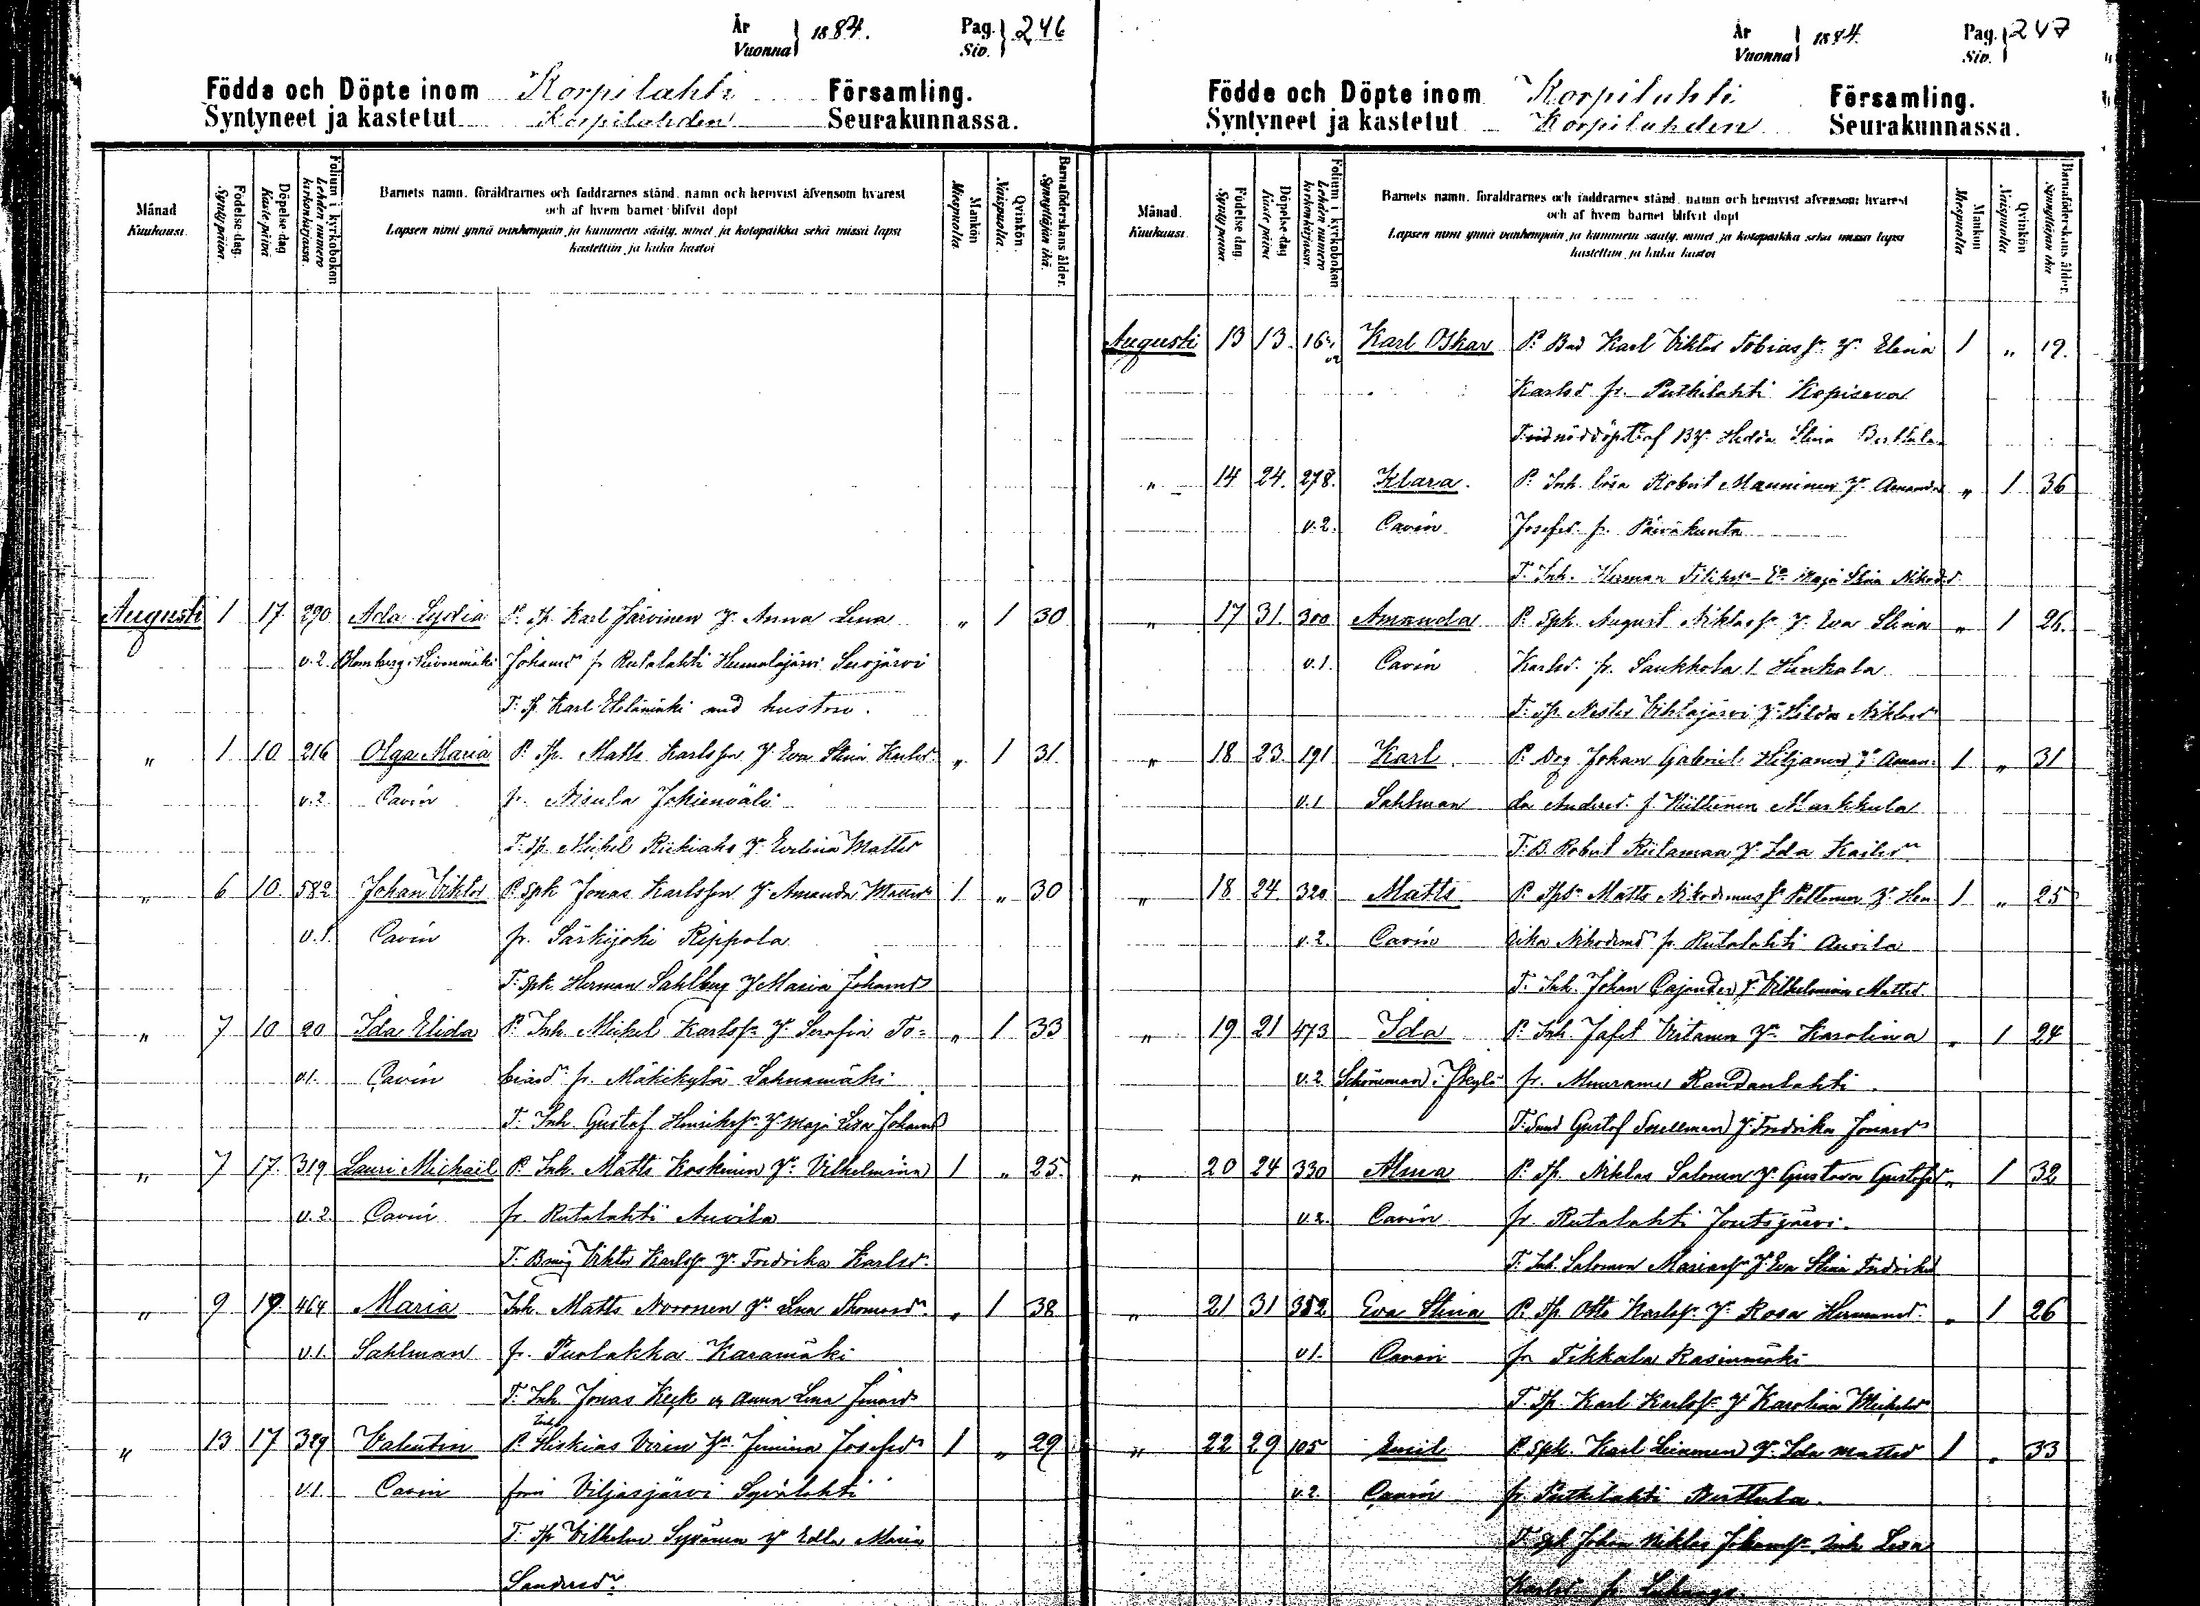 År
Vuonna } 1884. Pag. Siv. } 246
Födda och Döpte inom Korpilahti Församling.
Syntyneet ja kastetut Korpilahden Seurakunnassa.
Månad Kuukausi.
Födelse-dag. Syntypäivä.
Döpelse-dag Kaste päivä
Folium i kyrkoboken Lehden numero kirkonkirjassa.
Barnets namn, föräldrarnes och faddrarnes stånd, namn och hemvist äfvensom hvarest
och af hvem barnet blifvit döpt
Lapsen nimi ynnä vanhempain ja kummein sääty, nimet ja kotopaikka sekä missä lapsi
kastettiin ja kuka kastoi
Mankön Miespuolia
Qvinkön. Naispuolia.
Barnaföderskans ålder. Synnyttäjän ikä.
Augusti 1 17 290 Ada Lydia P. Tp. Karl Järvinen Hu Anna Lena " 1 30
v. 2. Blomberg i Leivonmäki Johansd fr. Rutalahti Humalajärvi Suojärvi
T. Tp. Karl Etelämäki med hustru.
" 1 10 216 Olga Maria P. Tp. Matts Karlsson H. Eva Stina Karlsd. " 1 31.
v. 2 Cavén fr. Nisula Jokioinväli
T. Tp. Mickel H. Evelina Mattsd
" 6 10 582 Johan Viktor P. Spk Jonas Karlsson H. Amanda Mattsd 1 " 30
v. 1. Cavén fr. Särkijoki Rippola
T. Spk Herman Sahlberg H Maria Johansd
" 7 10 20 Ida Elida P. Inh. Mickel Karlss. H. Serafia To- " 1 33
v1. Cavén biasd fr. Mäkikylä Sahnamäki
T. Inh. Gustaf Henrikss. H. Maja Lisa Johansd
" 7 17. 319 Lauri Michaël P. Inh. Matts Koskinen H. Vilhelmina 1 " 25.
v. 2 Cavén fr. Rutalahti Auvila
T. Viktor Karlss. H. Fredrika Karlsd.
" 9 19 464 Maria Inh. Matts Noronen H. Lena Thomasd " 1 38
v.1. Sahlman fr. Puolakka Karamäki
T. Inh. Jonas Keck o Anna Lena Jonasd
" 13 17 329 Valentin P. Hiskias Viren H. Jemina Josefsd 1 " 29
v.1. Cavén från Viljasjärvi Syvälahti
T. Tp Vilhelm Syvänen H Edla Maria
Sandersd.
År
Vuonna } 1884. Pag. Siv. } 247
Födde och Döpte inom Korpilahti Församling.
Syntyneet ja kastetut Korpilahden Seurakunnassa.
Månad. Kuukausi.
Födelse dag. Synty päivä.
Döpelse-dag Kaste päivä
Folium i kyrkoboken Lehden numero kirkonkirjassa.
Barnets namn, föräldrarnes och faddrarnes stånd, namn och hemvist äfvensom hvarest
och af hvem barnet blifvit döpt
Lapsen nimi ynnä vanhempain ja kummein sääty, nimet ja kotopaikka sekä missä lapsi
kastettiin ja kuka kastoi
Mankön Miespuolia
Qvinkön Naispuolia
Barnaföderskans ålder. Synnyttäjän ikä
Augusti 13 13. Karl Oskar P. Karl Viktor Tobiass. H. Elina 1 " 19.
Karlsd fr. Putkilahti Kopiseva
nöddöpt af Hedda Stina Berttula
" 14 24. 278. Klara. P. Inh. Robert Manninen H. Amanda " 1 36
v.2. Cavén Josefsd. fr. Päiväkunta
T. Inh. Herman Maja Stina
" 17 31. 300 Amanda P. Spk. August Niklass. H. Eva Stina " 1 26.
v.1. Cavén Karlsd. fr. Saukkola 1 Hankala
T. Tp. Nestor Vihtajärvi H. Hilda Niklasd
" 18 23. 191 Karl. P. Drg Johan Gabriel Hiljanen H. Aman- 1 " 31
v.1 Sahlman da Andersd. f. Hüttinen Markkula
T. B. Robert Riitamaa H. Ida Kaisd
" 18 24 320 Matts P. Matts Nikodemuss Peltonen H. Hen- 1 " 25
v.2. Cavén rika Nikodemsd fr. Rutalahti Auvila
T. Inh. Johan Cajander H. Vilhelmina Mattsd.
" 19 21 473 Ida P. Inh. Jafet Virtanen H. Karolina " 1 24
v.2 Schöneman i Jkylä fr. Muurame Randanlahti.
T. Gustaf Snellman H. Fredrika Jonasd
" 20 24 330 Alma P. Tp. Niklas Salonen H. Gustava Gustafsd " 1 32
v.2. Cavén fr. Rutalahti Joutsjärvi.
T. Inh. Salomon Mariass H. Eva Stina Fredriksd
" 21 31 382 Eva Stina P. Tp. Otto Karlss. H. Rosa Hermansd. " 1 26
v1. Cavén fr Tikkala Rasinmäki
T. Tp. Karl Karlss. H Karolina Mickelsd
" 22 29 105 Emil P. Spk. Karl Leinonen H. Ida Mattsd 1 " 33
v.2. Cavén fr. Putkilahti Berttula.
T. Spk Johan Niklas Johanss. Lisa
Karlsd fr